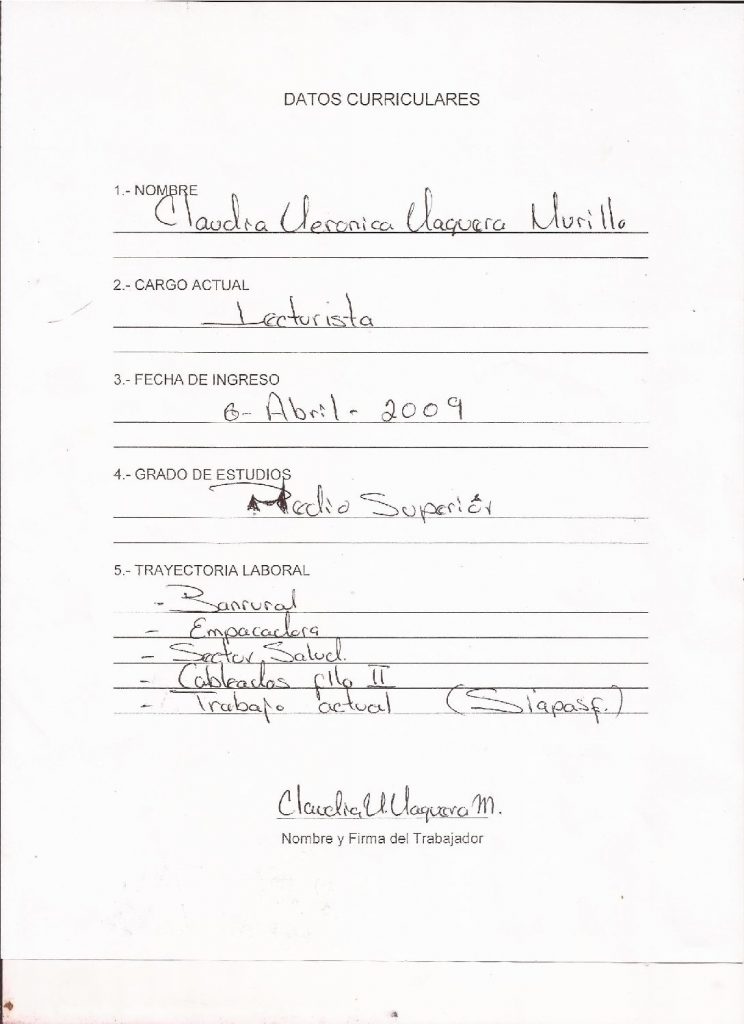 DATOS CURRICULARES
1.- NOMBRE
Claudia Veronica Vaquera Murillo
2.- CARGO ACTUAL
Lecturista
3.- FECHA DE INGRESO
6- Abril- 2009
4.- GRADO DE ESTUDIOS
Medio Superiór
5.- TRAYECTORIA LABORAL
- Banrural
- Empacadora
- Sector Salud.
- Cableados fllo II
- Trabajo actual (Siapasf.)
Claudia V. Vaquera M.
Nombre y Firma del Trabajador